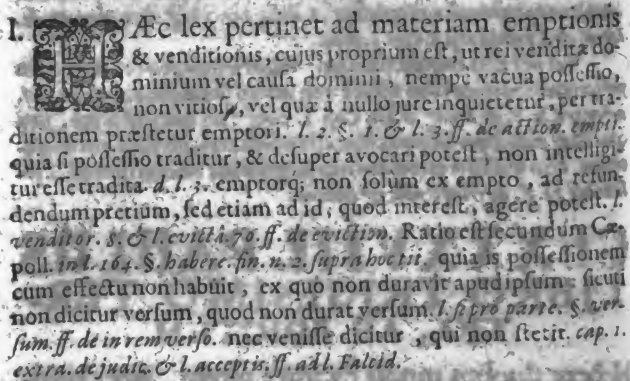 I. HÆc lex pertinet ad materiam emptionis
& venditionis, cujus proprium eſt, ut rei venditæ do-
minium vel cauſa dominii, nempè vacua poſſeſſio,
non vitioſa, vel quæ à nullo jure inquietetur, per tra-
ditionem præſtetur emptori. l. 2. §. 1. & l. 3. ff. de action. empti.
quia ſi poſſeſſio traditur, & deſuper avocari poteſt, non intelligi-
tur eſſe tradita. d. l. 3. emptorq; non ſolùm ex empto, ad refun-
dendum pretium, ſed etiam ad id, quod intereſt, agere poteſt. l.
venditor. 8. & l. evictâ. 70. ff. de eviction. Ratio eſt ſecundum Cæ-
poll. in l. 164. §. habere. fin. n. 2. ſupra hoc tit. quia is poſſeſſionem
cum effectu non habuit, ex quo non duravit apud ipſum: ſicuti
non dicitur verſum, quod non durat verſum. l. ſi pro parte. §. ver-
ſum. ff. de in rem verſo. nec veniſſe dicitur, qui non ſtetit. cap. 1.
extra. de judic. & l. acceptis. ff. ad l. Falcid.